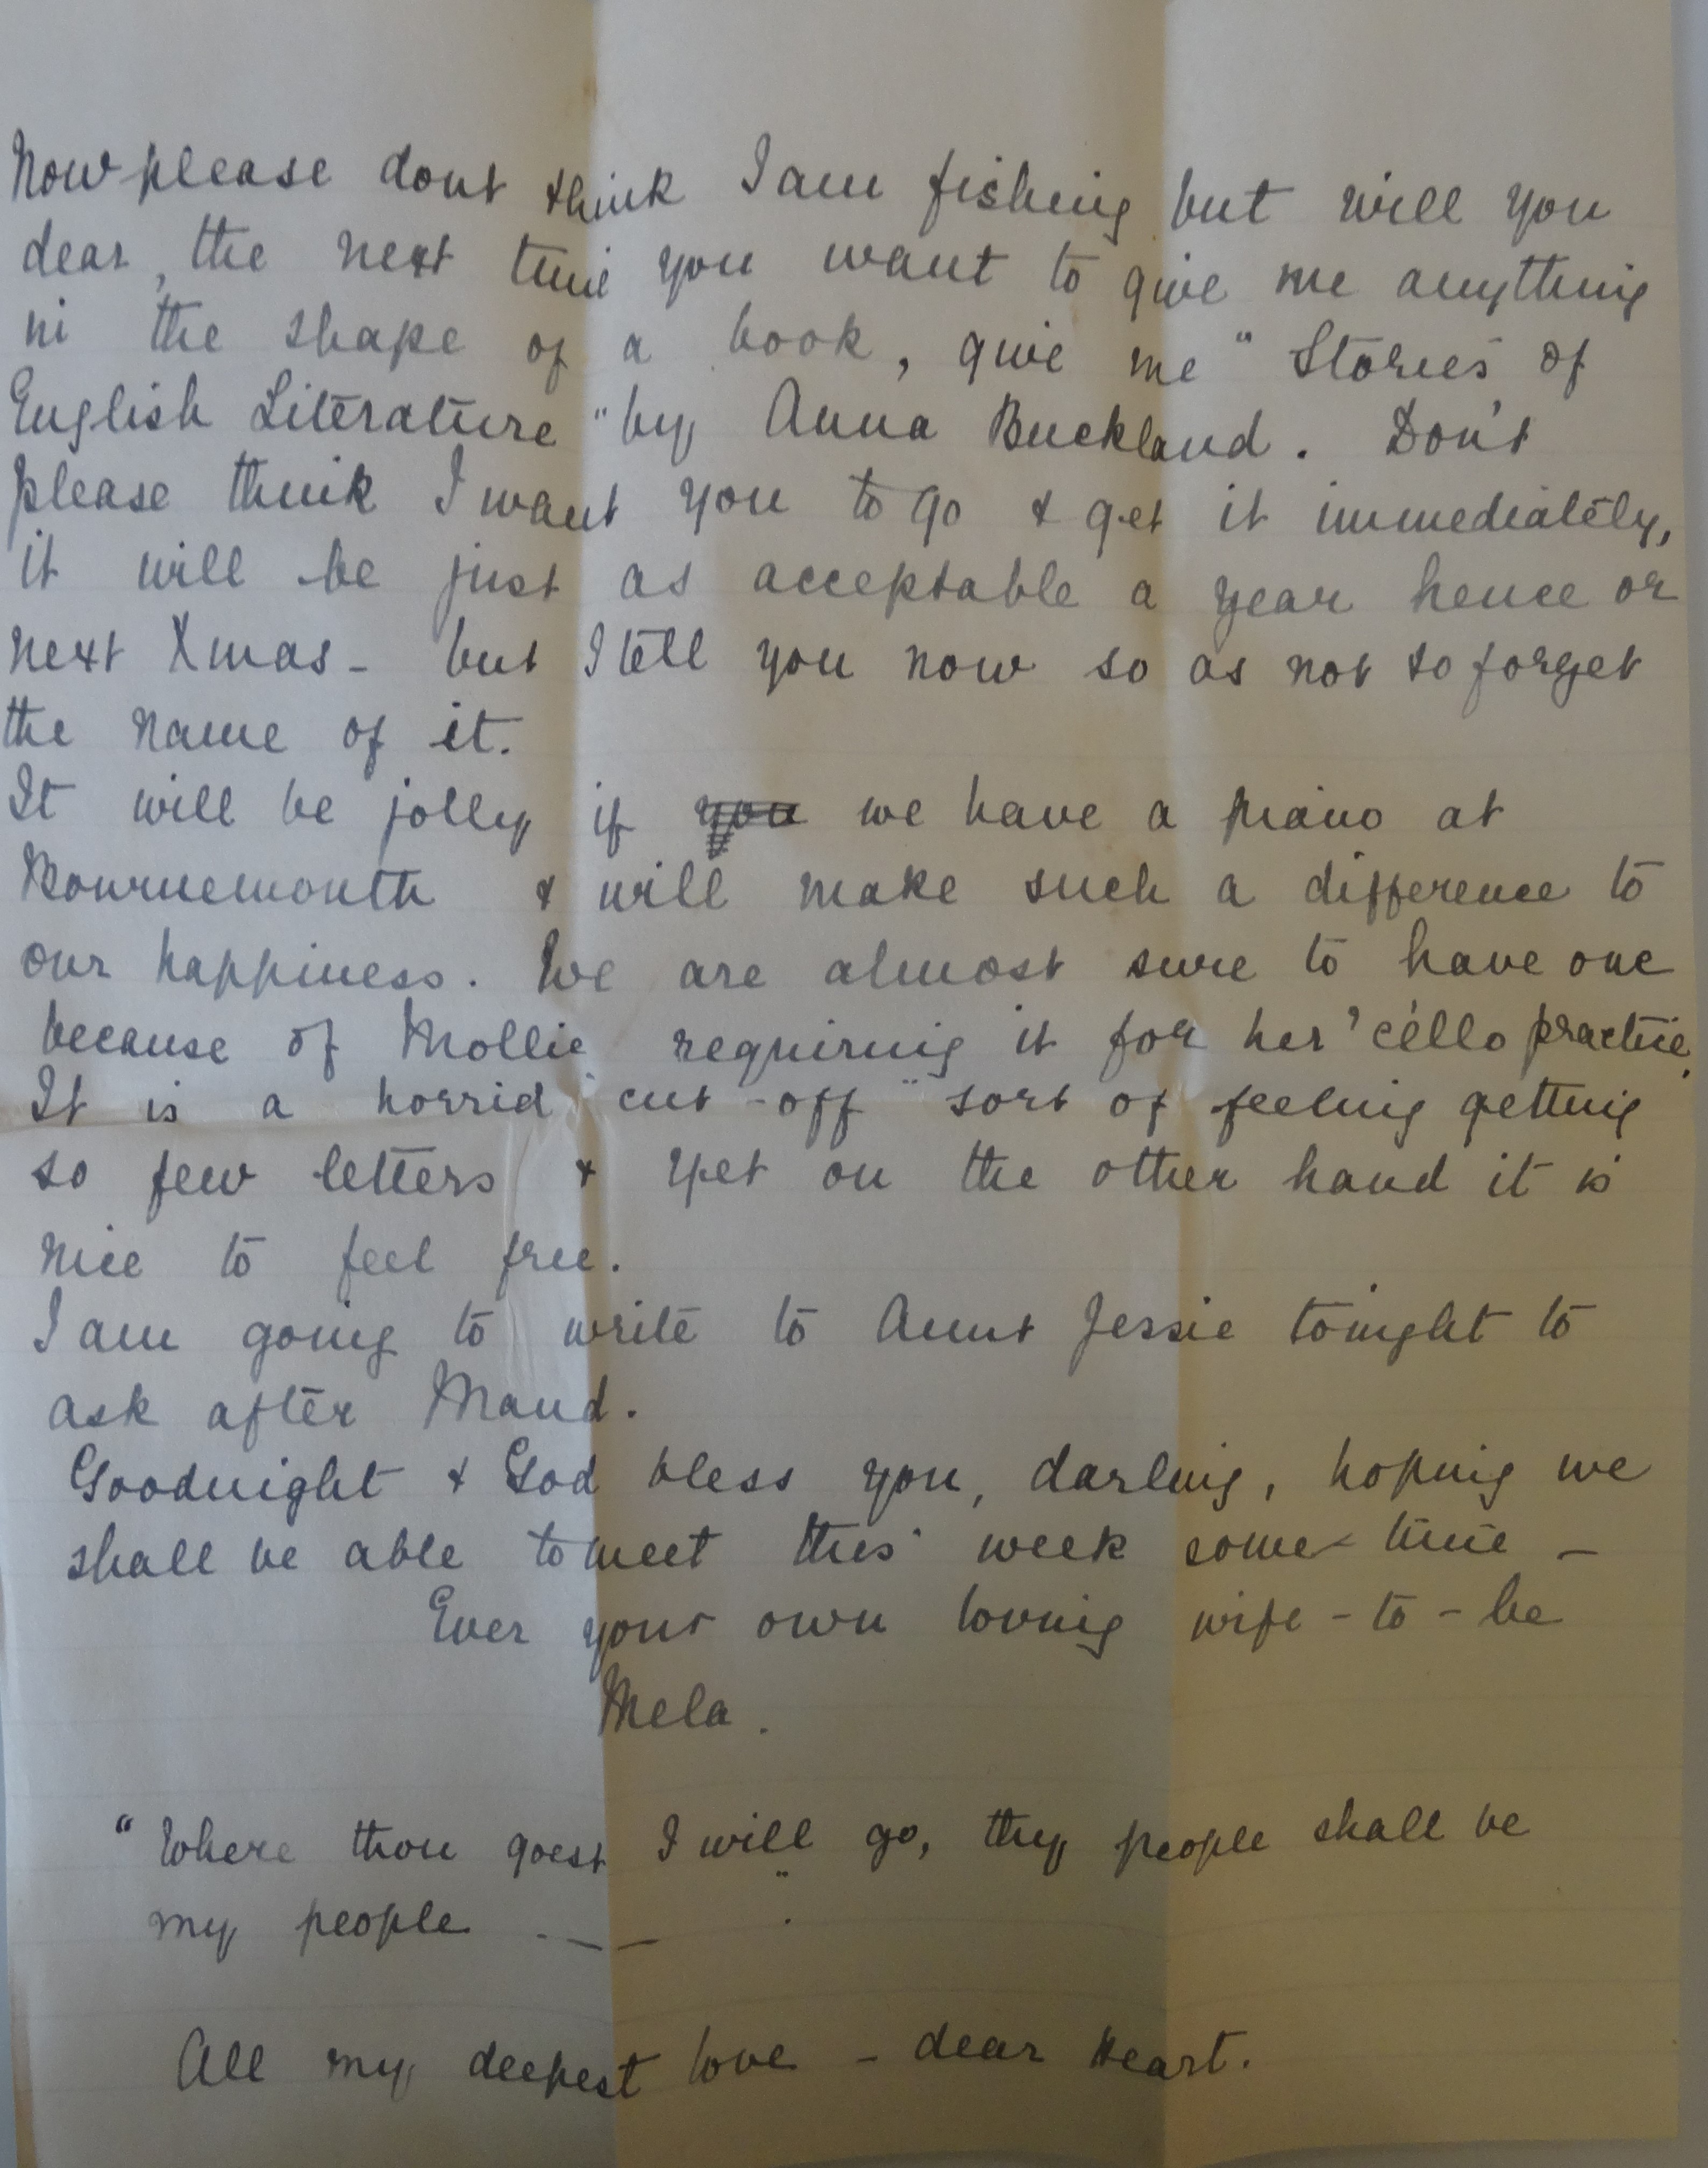 Now please dont think I am fishing but will you
dear, the next time you want to give me anything
in the shape of a book, give me "Stories of
English Literature" by Anna Buckland. Don't
please think I want you to go & get it immediately,
it will be just as acceptable a year hence or
next Xmas - but I tell you now so as not to forget
the name of it.
It will be jolly if you we have a piano at
Bournemouth & will make such a difference to
our happiness. We are almost sure to have one
because of Mollie requiring it for her 'cello practice.
It is a horrid "cut-off" sort of feeling getting
so few letters & yet on the other hand it is
nice to feel free.
I am going to write to Aunt Jessie tonight to
ask after Maud.
Goodnight & God bless you, darling, hoping we
shall be able to meet this week some time -
Ever your own loving wife-to-be
Mela.
"Where thou goest I will go, thy people shall be
my people - — — "
All my deepest love - dear heart.